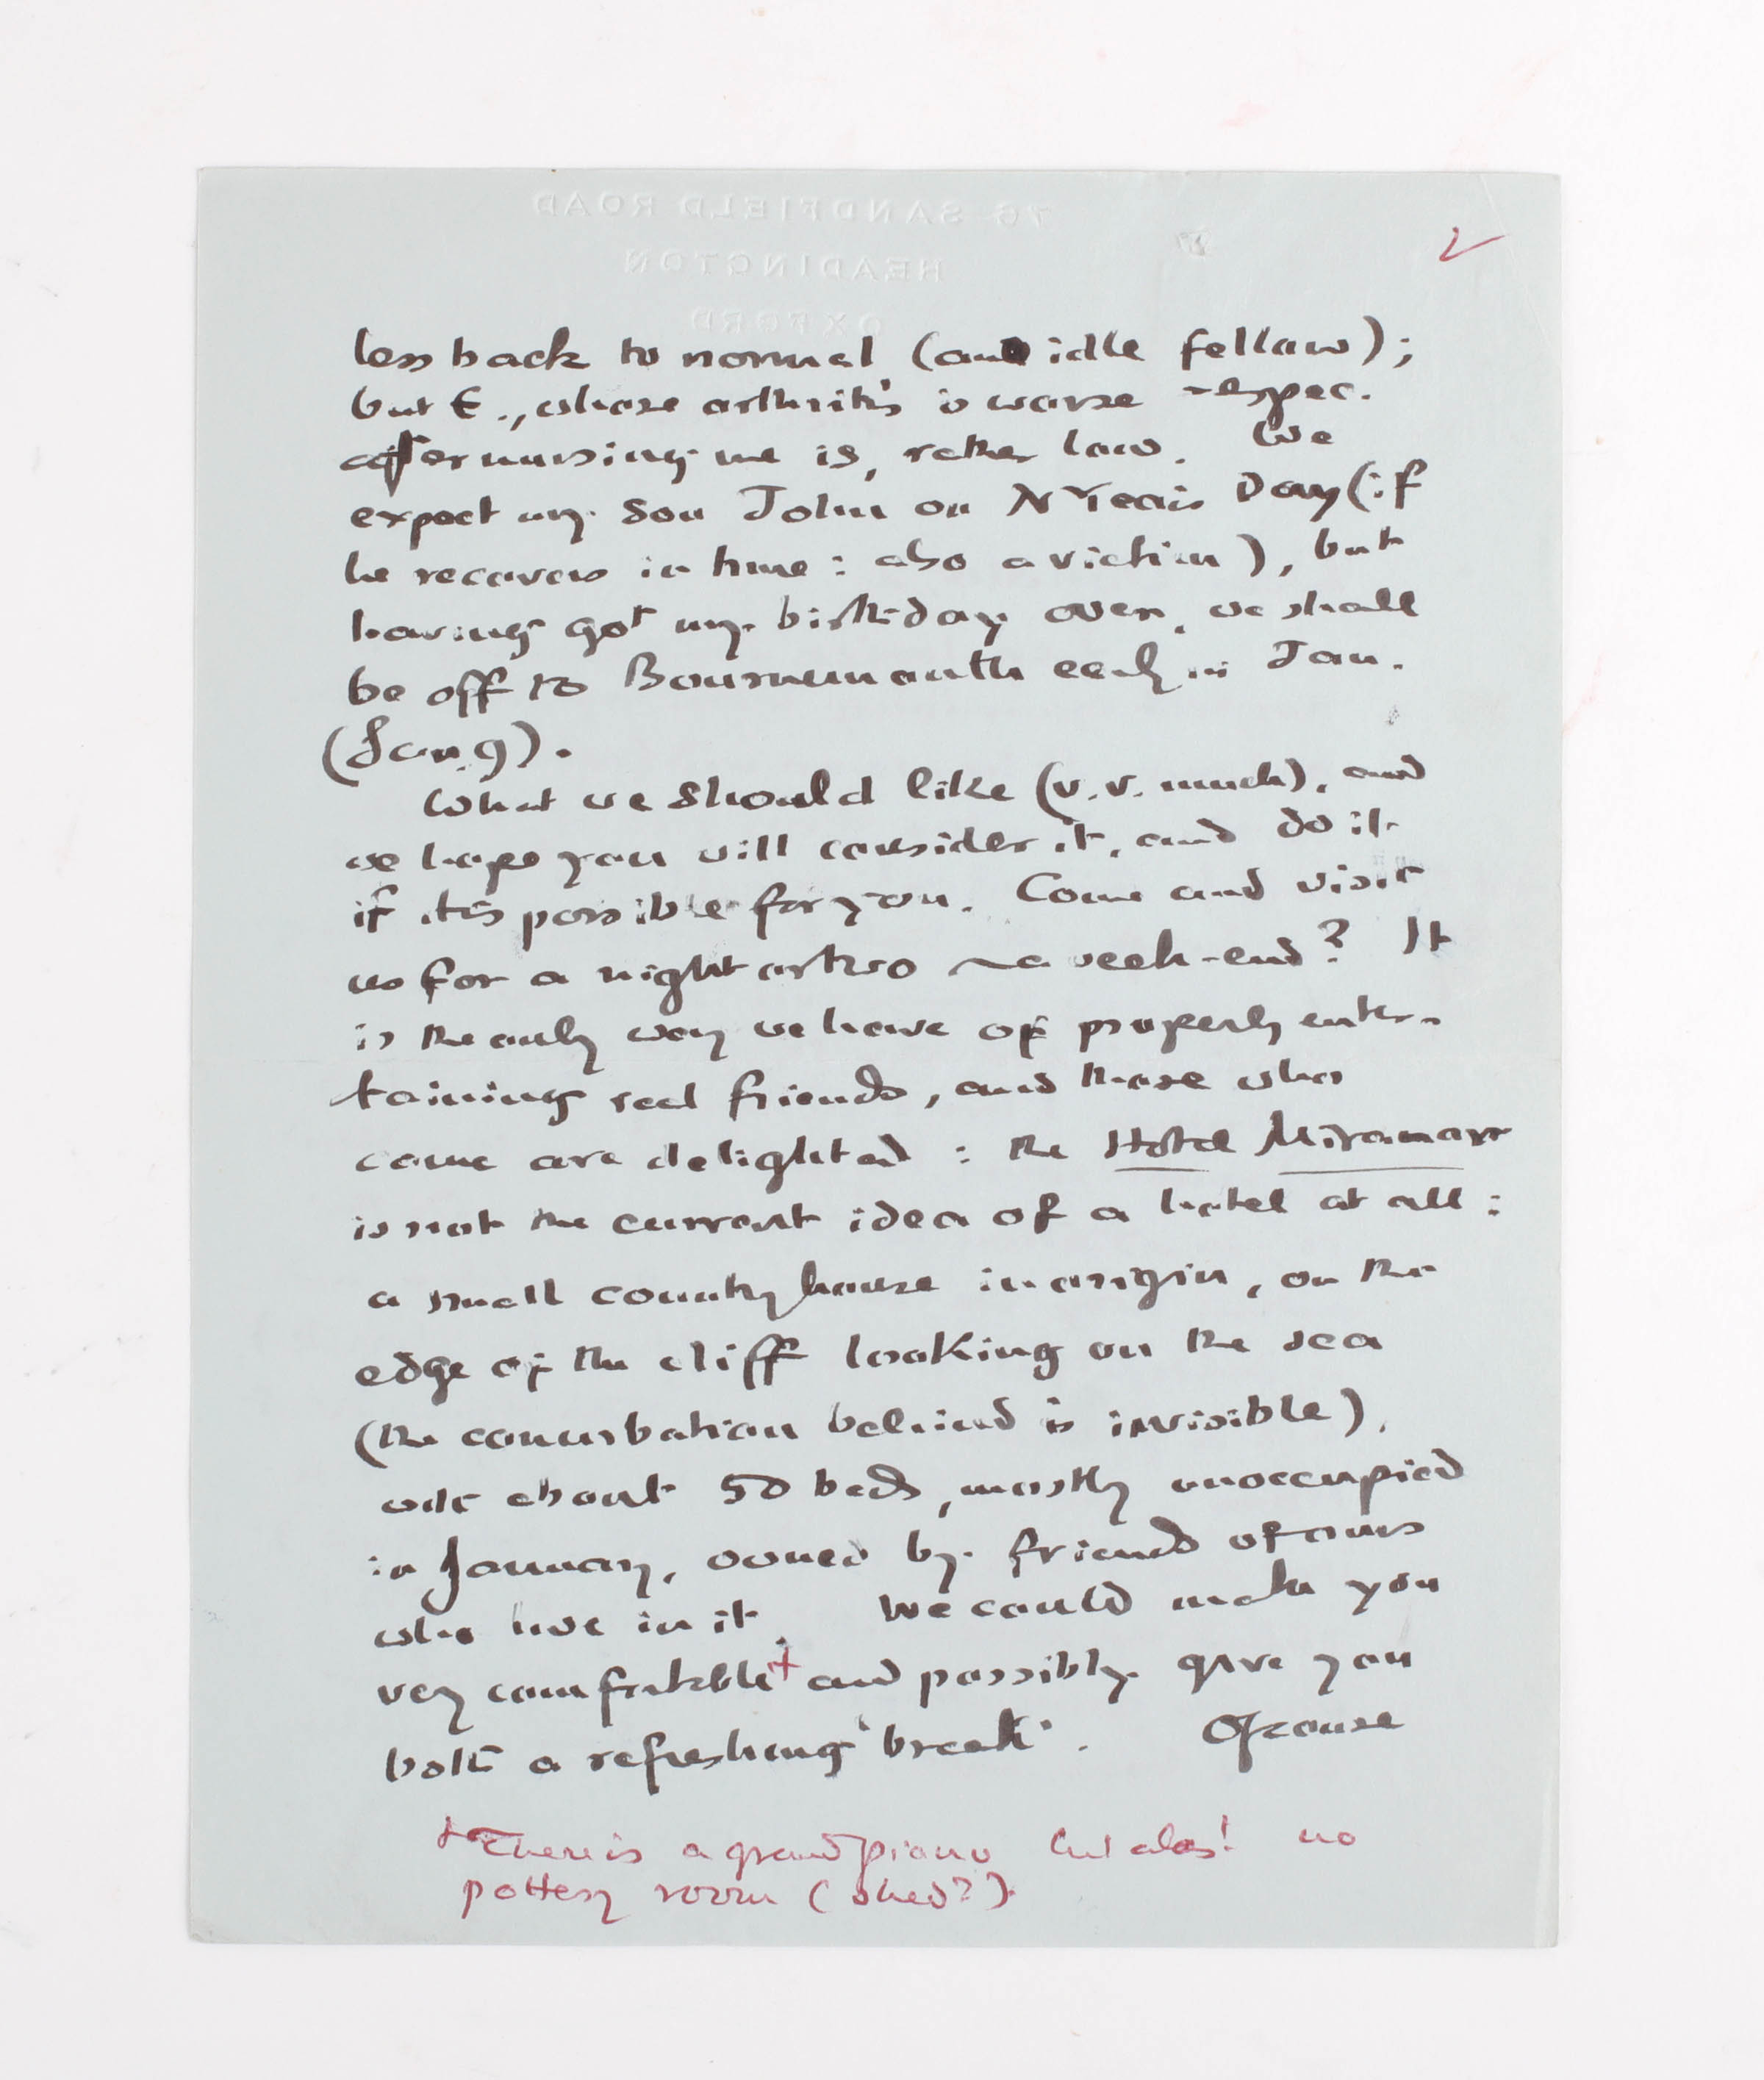 76 SANDFIELD ROAD
HEADINGTON
OXFORD
2
less back to normal (and idle fellow);
but E., whose arthritis is worse – espec.
after nursing me is, rather low. We
expect my son John on N Years Day (if
he recovers in time : also a victim), but
having got my birthday over, we shall
be off to Bournemouth early in Jan.
(Jan. 9).
What we should like (v.v. much), and
we hope you will consider it, and do it
if it is possible for you. Come and visit
us for a night or two ~ a week-end? It
is the only way we have of properly enter-
taining real friends, and those who
come are delighted : the Hotel Miramar
is not the current idea of a hotel at all :
a small country house in origin, on the
edge of the cliff looking on the sea
(the conurbation behind is invisible),
with about 50 beds, mostly unoccupied
in January, owned by friends of ours
who live in it. We could make you
very comfortable + and possibly give you
both a refreshing 'break'. Of course
+ There is a grand piano but alas! no
pottery room (shed?).